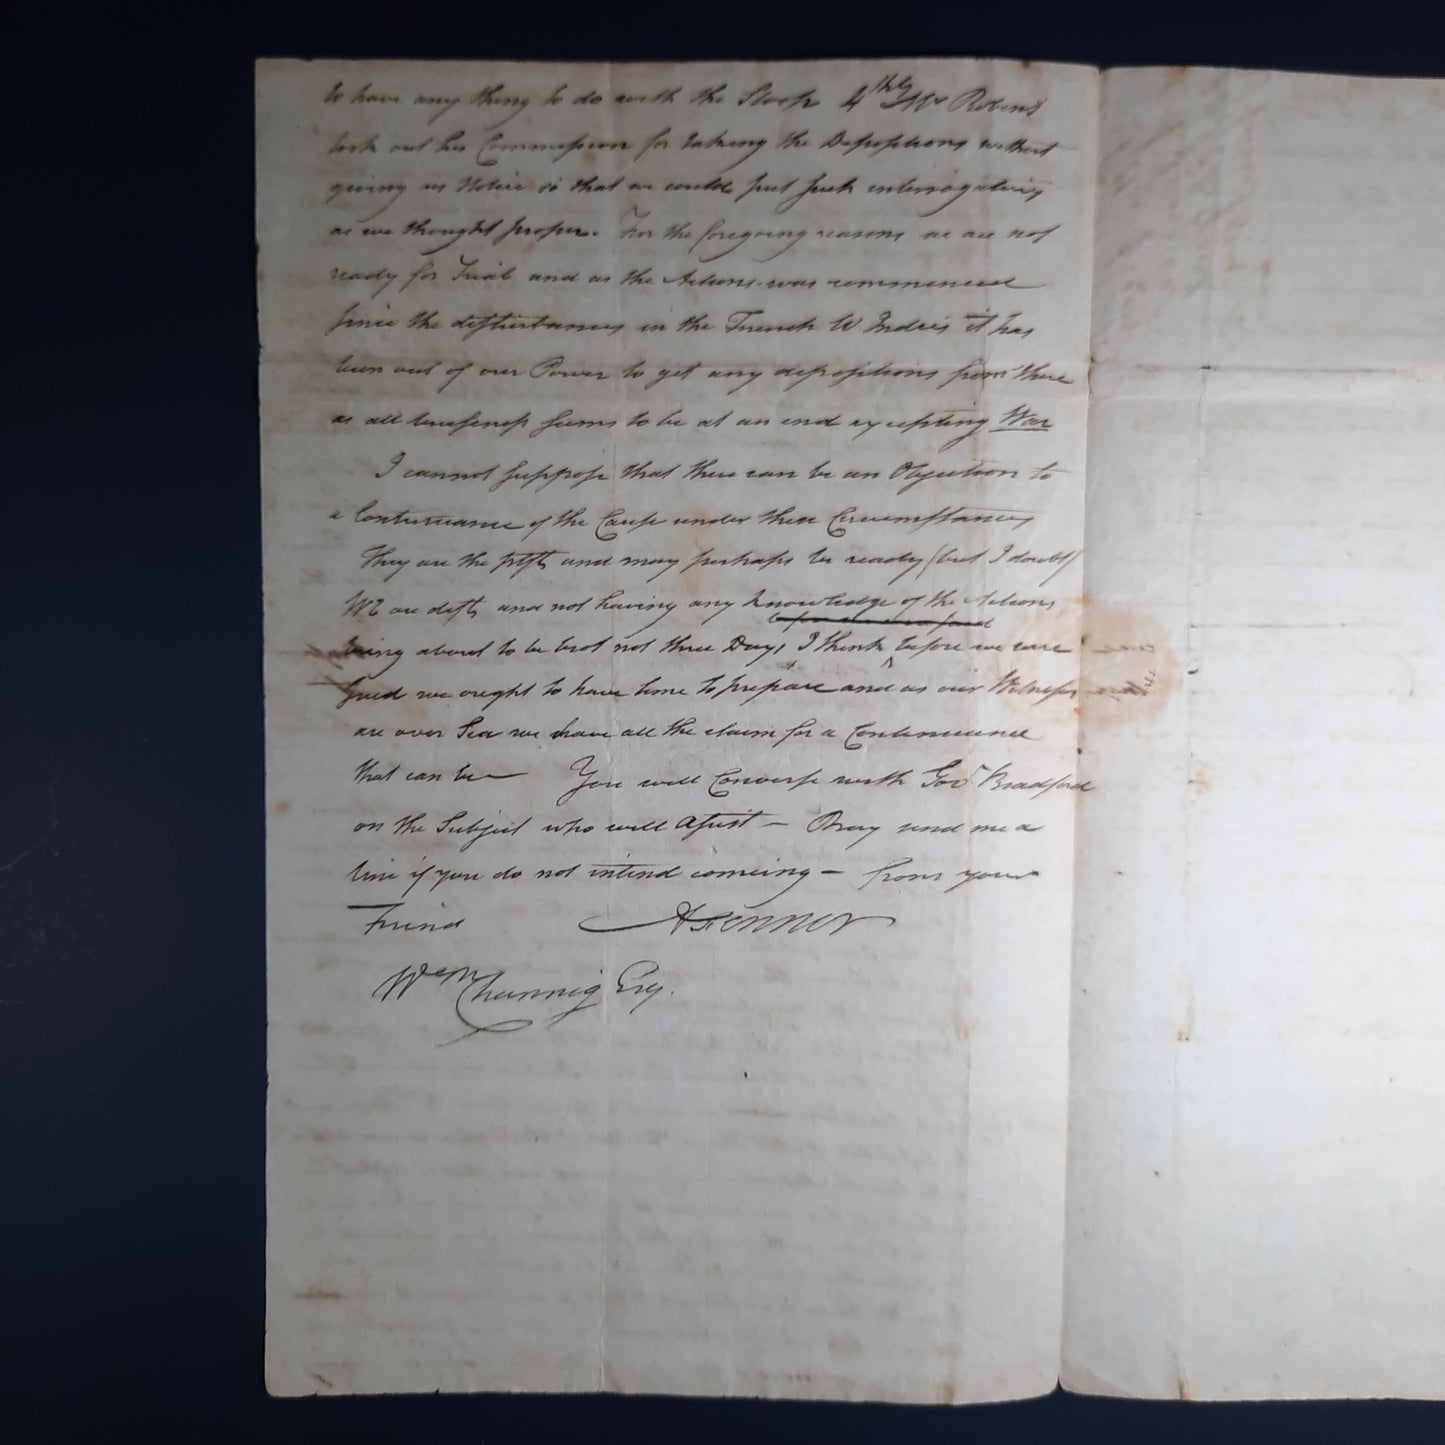 to have any thing to do with the Sloop 4thly Mr Robins
took out his Commission for taking the Depositions without
giving us Notice so that we could put such interrogatories
as we thought proper. For the foregoing reasons we are not
ready for Trial and as the Actions was commenced
since the disturbances in the French W Indies it has
been out of our Power to get any depositions from there
as all business seems to be at an end excepting War
I cannot suppose that there can be an Objection to
a Continuance of the Cause under these Circumstances
They are the pltfs and may perhaps be ready (but I doubt)
We are defts and not having any knowledge of the Actions
being about to be brot not three Days I think before we were
sued we ought to have time to prepare and as our Witnesses
are over Sea we have all the claim for a Continuance
that can be — You will Converse with Govr Bradford
on the Subject who will assist — Pray send me a
line if you do not intend comeing — from your
Friend AFenner
Wm Channig Esq.